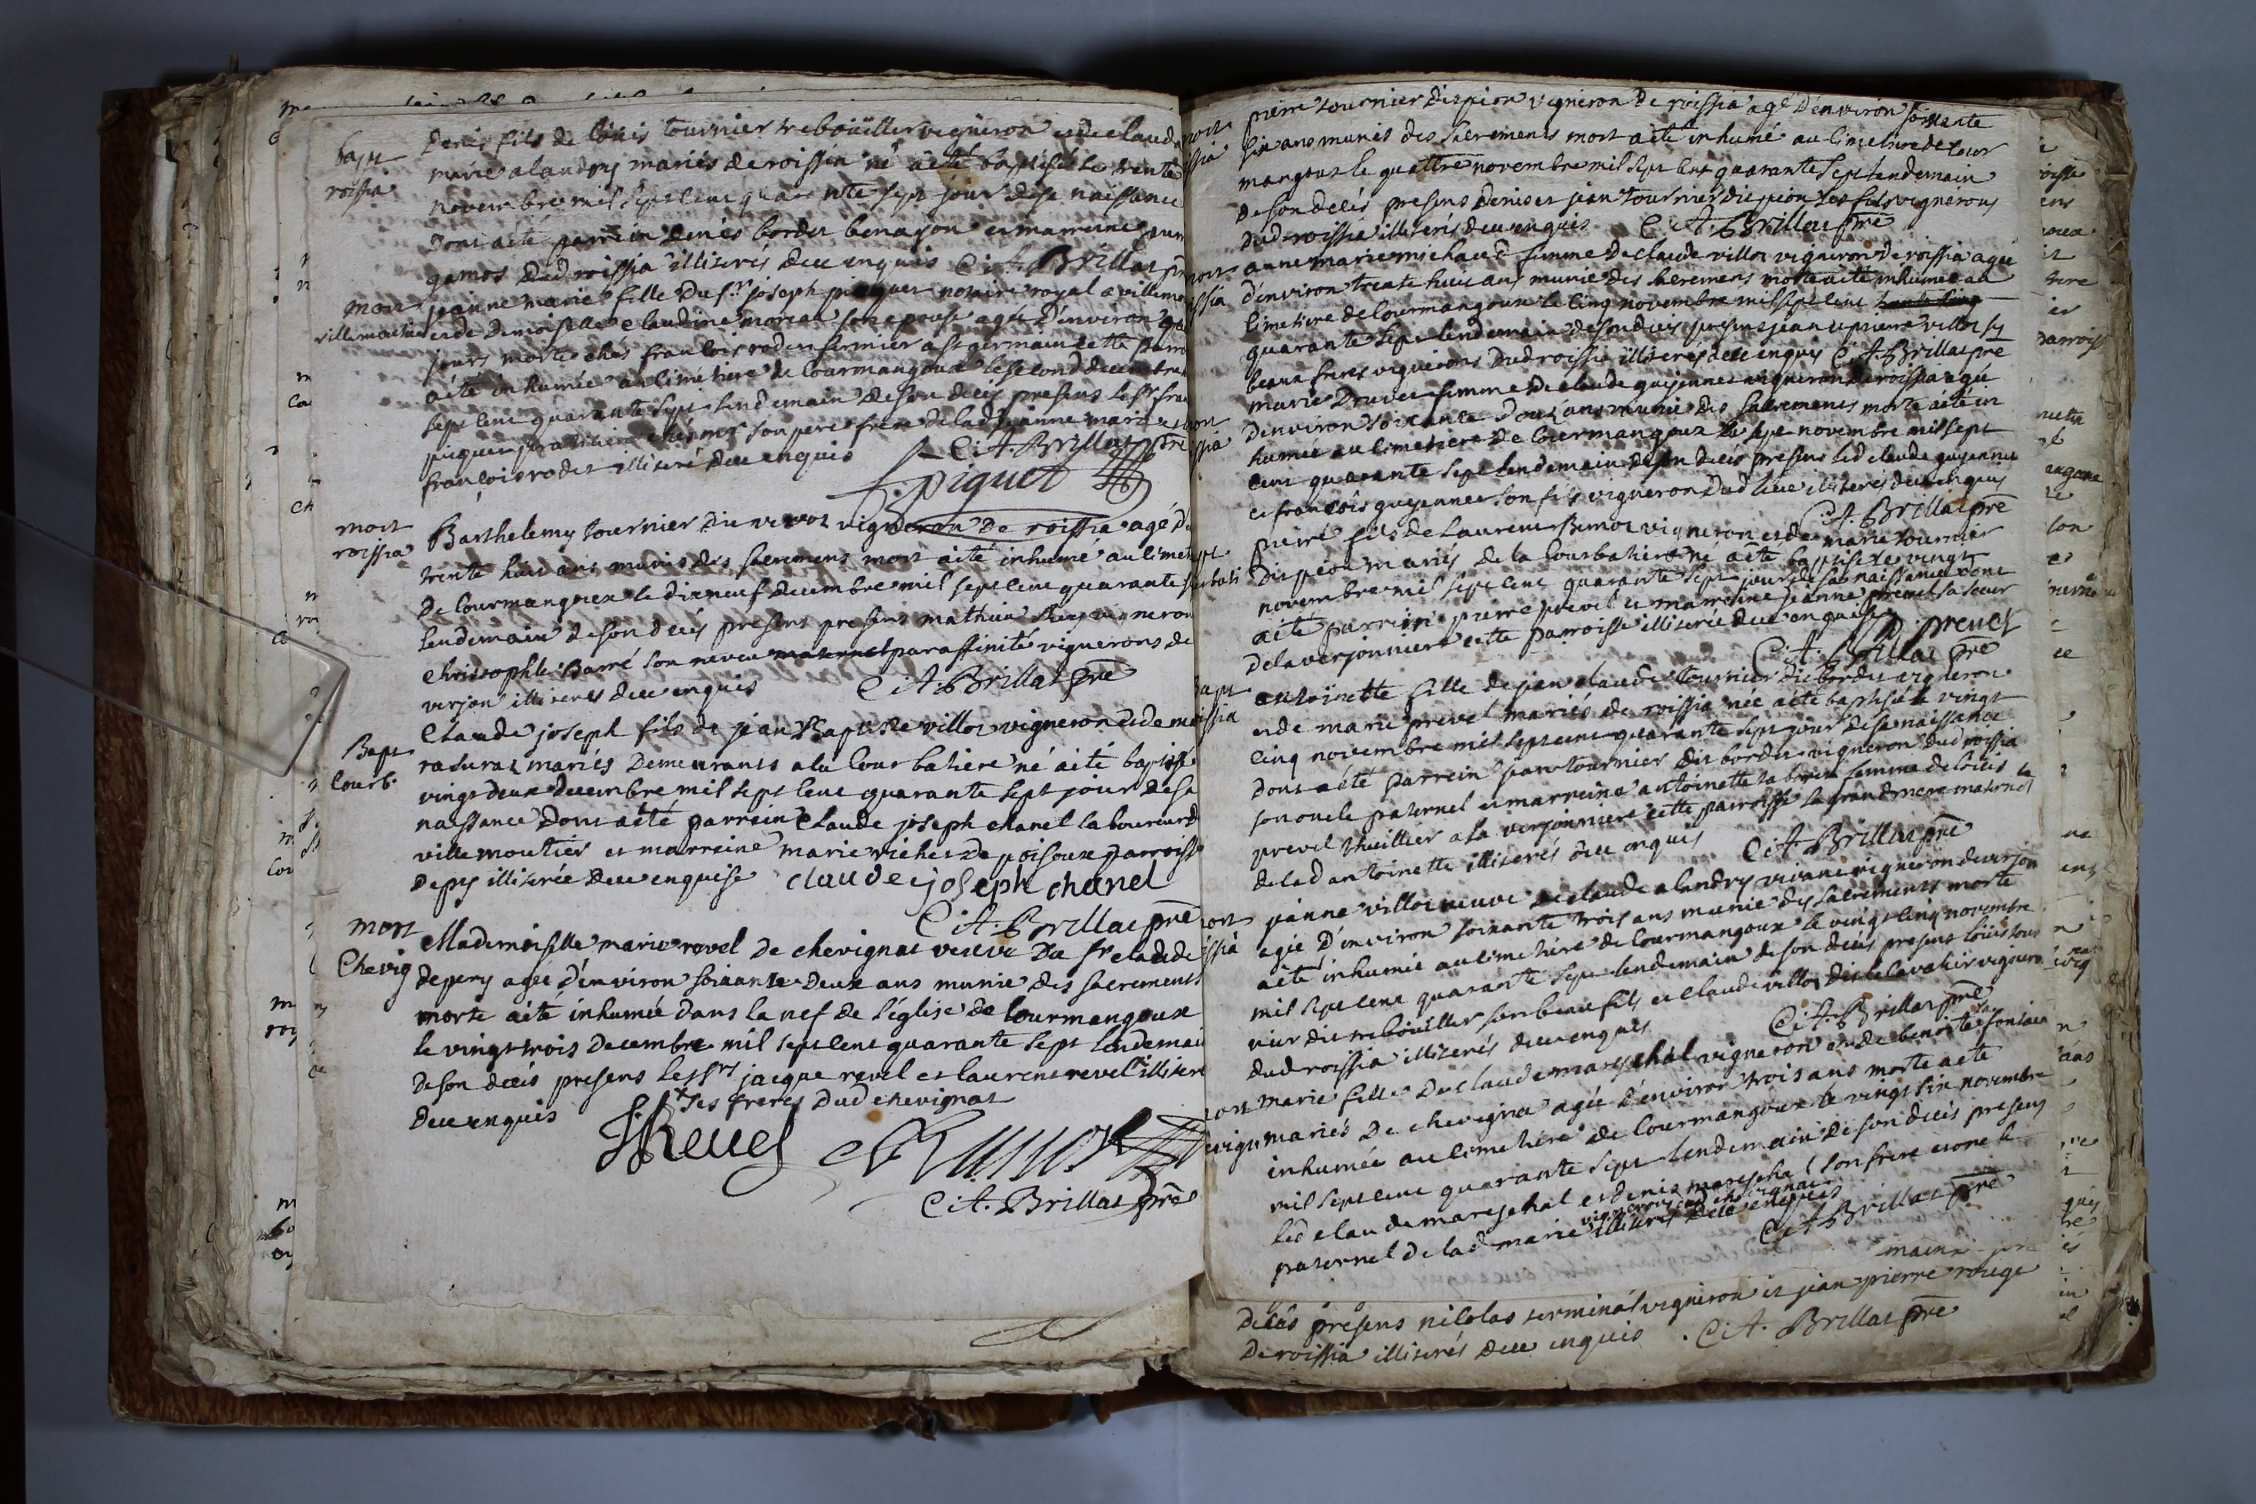 bapt
roissia
Denis fils de loüis tournier treboüiller vigneron et de claud
marie alandry mariés de roissia né aété baptisé le trente
novembre mil sept cent quarante sept jour de sa naissance
dont aété parrein denis border benason et marreine
gamos dud roissia illiterés de ce enquis C. A. Brillat prē
mort
villemoutier
jeanne marie fille du sr. joseph piquet notaire royal a villemo
et de demoiselle claudine moreau son epouse agée d'environ
jours morte chés francois rodet fermier a st germain cette parro
aété inhumée au cimetiere de Courmangoux le second decembre
sept cent quarante sept lendemain de son decés presens le sr
piquet son pere frere de lad jeanne marie et
francois rodet illiteré de ce enquis C. A. Brillat prē
Piquet
mort
roissia
Barthelemy tournier dit vivot vigneron de roissia agé d
trente huit ans munis des sacremens mort aété inhumé au cimet
de Courmangoux le dixneuf decembre mil sept cent quarante
lendemain de son decés presens presens mathieu vigneron
christophle Barré son neveu maternel par affinité vignerons de
verjon illiterés de ce enquis C. A. Brillat prē
Bapt
Courb.
Claude joseph fils de jean Baptiste villot vigneron et de m
rasurat mariés demeurants a la Courbatiere né aété baptisé
vingt deux decembre mil sept cent quarante sept jour de sa
naissance dont aété parrein claude joseph chanel laboureur d
villemoutier et marreine marie richet de poisoux parroisse
depy illiterée de ce enquise claude joseph chanel
C. A. Brillat prē
mort
Chevig
Mademoiselle marie revel de chevignat veuve du sr claude
depery agée d'environ soixante deux ans munie des sacrements
morte aété inhumée dans la nef de l'église de Courmangoux
le vingt trois decembre mil sept cent quarante sept lendemai
de son decés presens les srs jacque revel et laurent revel illiter
ses freres dud chevignat
de ce enquis J Revel
C. A. Brillat prē
pierre tournier dit pion vigneron de roissia agé d'environ soixante
six ans munis des sacrements mort aété inhumé au cimetiere de Cour
mangoux le quattre novembre mil sept cent quarante sept lendemain
de son decés presens denis et jean tournier dit pion ses fils vignerons
dud roissia illiterés de ce enquis C. A. Brillat prē
anne marie michaud femme de claude villot vigneron de roissia agée
d'environ trente huit ans munie des sacremens morte aété inhumée au
cimetiere de Courmangoux le cinq novembre mil sept cent
quarante sept lendemain de son decés presens jean et pierre villot ses
beaux freres vignerons dud roissia illiterés de ce enquis C. A. Brillat prē
marie femme de claude guyennet vigneron de roissia agée
d'environ soixante douz ans munie des sacrements morte aété in
humée au cimetiere de Courmangoux le sept novembre mil sept
cent quarante sept lendemain de son decés presens led claude guyennet
et francois guyennet son fils vigneron dud lieu illiterés de ce enquis
C. A. Brillat prē
pierre fils de laurent vigneron et de marie tournier
dit pion mariés de la Courbatiere né aété baptisé le vingt
novembre mil sept cent quarante sept jour de sa naissance dont
aété parrein pierre prevel et marreine jeanne prevel sa soeur
de la verjonniere cette parroisse illiterée de ce enquise P. prevel
C. A. Brillat prē
antoinette fille de jean claude tournier dit border vigneron
et de marie prevel mariés de roissia née aété baptisée le vingt
cinq novembre mil sept cent quarante sept jour de sa naissance
dont aété parrein jean tournier dit border vigneron dud roissia
son oncle paternel et marreine antoinette taborin femme de loüis
prevel thuillier a la verjonniere cette parroisse sa grandmere maternel
de lad antoinette illiterés de ce enquis C. A. Brillat prē
janne villot veuve de claude alandry vivant vigneron de verjon
agée d'environ soixante trois ans munie des sacrements morte
aété inhumée au cimetiere de Courmangoux le vingt cinq novembre
mil sept cent quarante sept lendemain de son decés presens loüis tour
nier dit treboüiller son beau fils et claude villot dit le cavalier vigneron
dud roissia illiterés de ce enquis C. A. Brillat prē
marie fille de claude mareschal vigneron et de benoite fontain
mariés de chevignat agée d'environ trois ans morte aété
inhumée au cimetiere de Courmangoux le vingt six novembre
mil sept cent quarante sept lendemain de son decés presens
led claude mareschal et denis mareschal son frere oncle
paternel de lad marie vignerons dud chevignat illiterés de ce enquis
C. A. Brillat prē
decés presens nicolas terminal vigneron et jean pierre rouge
de roissia illiterés de ce enquis . C. A. Brillat prē